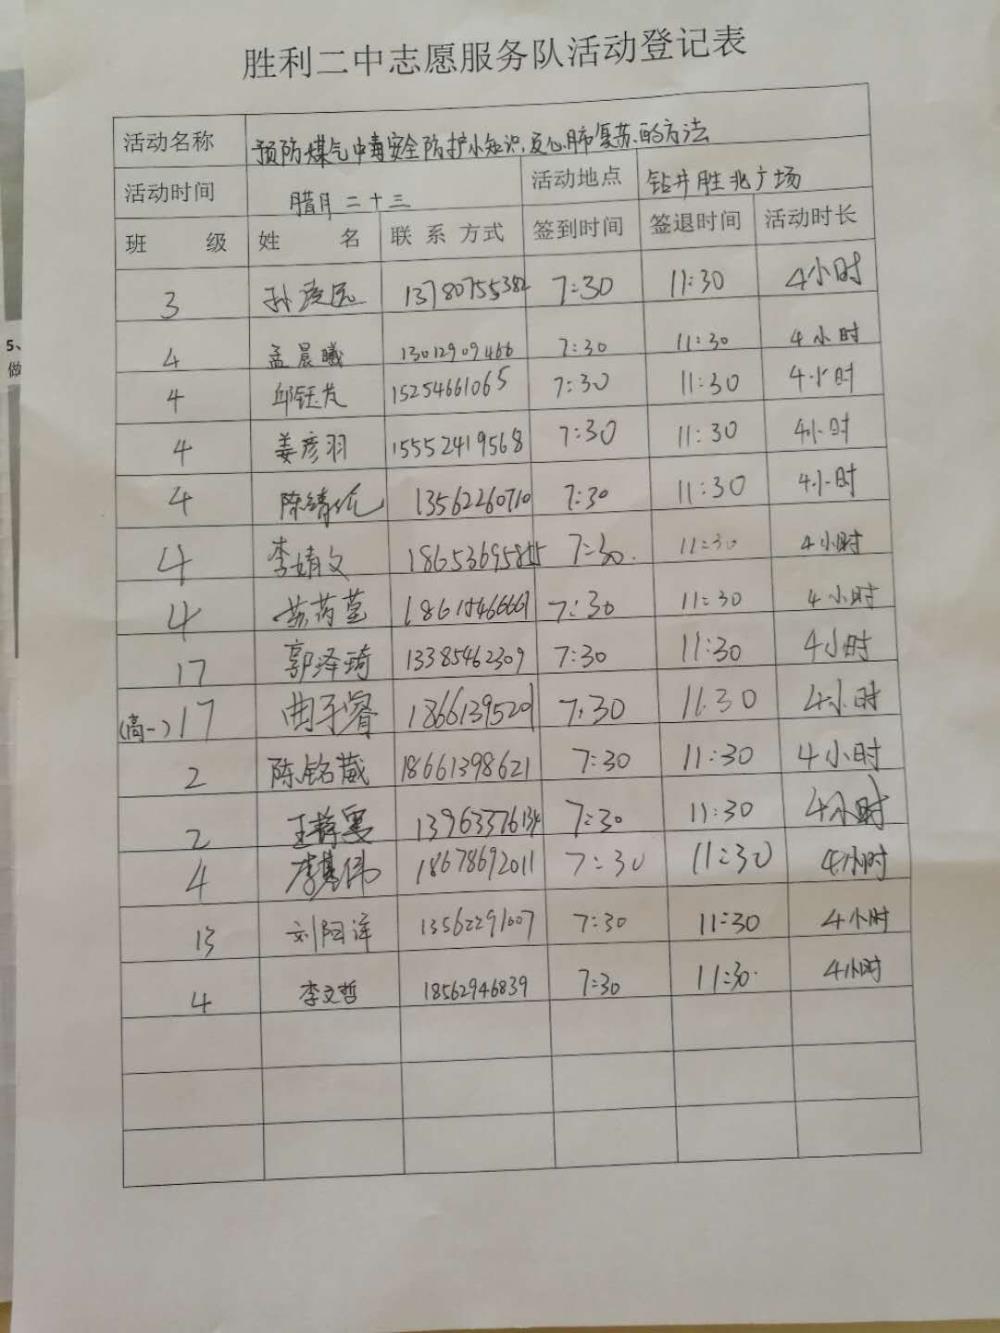 胜利二中志愿服务队活动登记表
活动名称 预防煤气中毒安全防护小知识,及心肺复苏的方法
活动时间 腊月二十三 活动地点 钻井胜北广场
班 级 姓 名 联 系 方式 签到时间 签退时间 活动时长
3 孙 13780755382 7:30 11:30 4小时
4 孟晨曦 13012909466 7:30 11:30 4小时
4 邱钰 15254661065 7:30 11:30 4小时
4 姜彦羽 15552419568 7:30 11:30 4小时
4 陈绮 13562260710 7:30 11:30 4小时
4 李婧文 7:30. 11:30 4小时
4 苏芮莹 7:30 11:30 4小时
17 郭泽琦 13385462309 7:30 11:30 4小时
(高一)17 曲子睿 18661395201 7:30 11:30 4小时
2 陈铭葳 18661398621 7:30 11:30 4小时
2 王 7:30 11:30 4小时
4 李基伟 18678692011 7:30 11:30 4小时
13 刘阳洋 13562291007 7:30 11:30 4小时
4 李文哲 18562946839 7:30 11:30. 4小时
5、
做